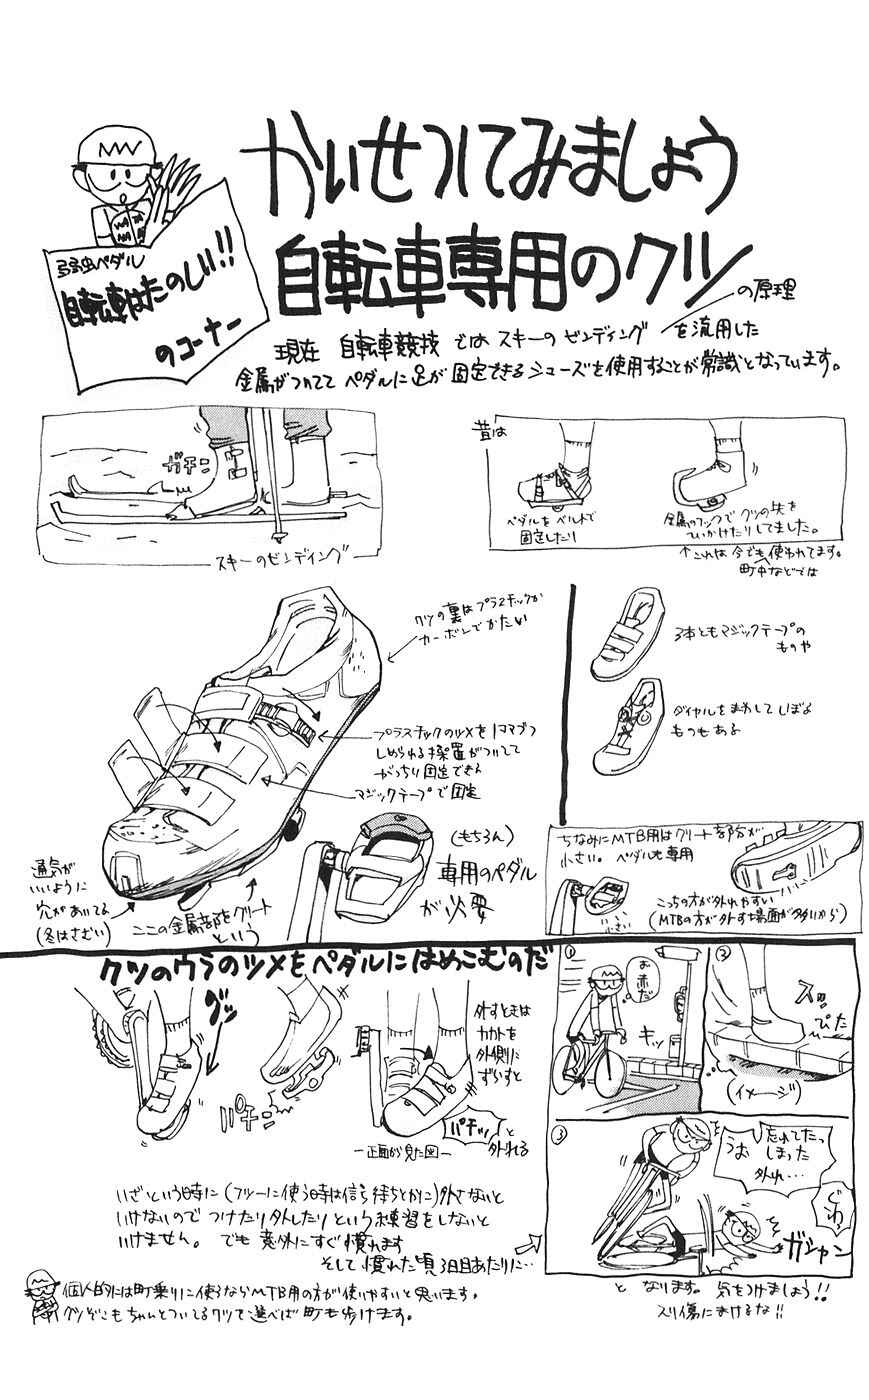 かいせつしてみましょう
弱虫ペダル
自転車はたのしい!!
のコーナー
自転車専用のクツ
の原理
現在 自転車競技 では スキーの ビンディング を流用した
金属がついてて ペダルに足が 固定できる シューズを使用することが常識となっています。
ガチン
スキーのビンディング
昔は
ペダルをベルトで
固定したり
金属のフックで クツの先を
ひっかけたりしてました。
↑これは 今でも 使われてます。
町中などでは
クツの裏はプラスチックか
カーボンでかたい
プラスチックのツメを1コマづつ
しめられる装置がついてて
がっちり固定できる
マジックテープで固定
3本ともマジックテープの
ものや
ダイヤルをまわして しぼる
ものもある
通気が
いいように
穴があいてる
(冬はさむい)
ここの金属部をクリート
という
(もちろん)
専用のペダル
が必要
ちなみにMTB用はクリート部分が
小さい。 ペダルも専用
こっちの方が外れやすい
(MTBの方が外す場面が多いから)
小さい
クツのウラのツメをペダルにはめこむのだ
グッ
パチン
外すときは
カカトを
外側に
ずらすと
パチッ と
外れる
ー正面から見た図ー
①
お
赤だ
キッ
②
スッ
ぴた
(イメージ)
③
うお
忘れてたっ
しまった
外れ…
どわっ
ガシャン
いざという時に(フツーに使う時は信号待ちとかに)外さないと
いけないので つけたり外したりという練習をしないと
いけません。 でも 意外にすぐ慣れます
そして慣れた頃 3日目あたりに…
と なります。 気をつけましょう!!
スリ傷にまけるな!!
個人的には町乗りに使うならMTB用の方が使いやすいと思います。
クツぞこもちゃんとついてるクツで選べば町も歩けます。